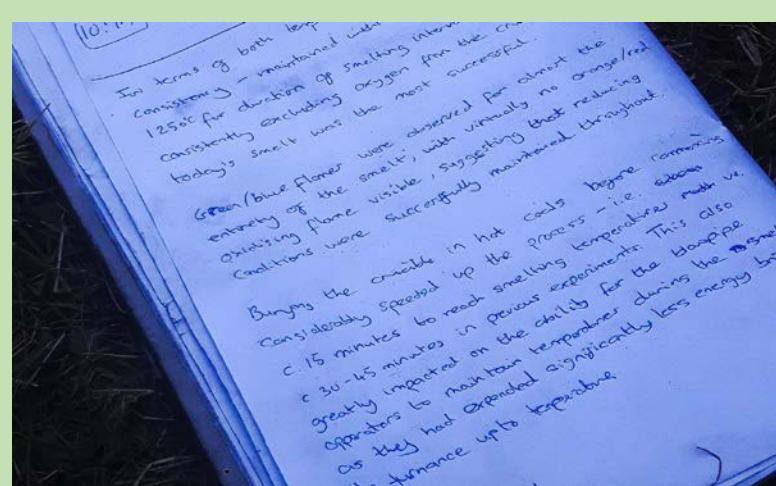 (10:
In terms of both temp
consistency – maintained with
1250°c for duration of smelting interv
consistently excluding oxygen from the cru
today's smelt was the most successful.
Green/blue flames were observed for almost the
entirety of the smelt, with virtually no orange/red
oxidising flame visible, suggesting that reducing
conditions were successfully maintained throughout.
Burying the crucible in hot coals before commencing
considerably speeded up the process – i.e.
c. 15 minutes to reach smelting temperatures vs.
c 30-45 minutes in previous experiments. This also
greatly impacted on the ability for the blowpipe
operators to maintain temperatures during the smel
as they had expended significantly less energy bri
furnace up to temperature